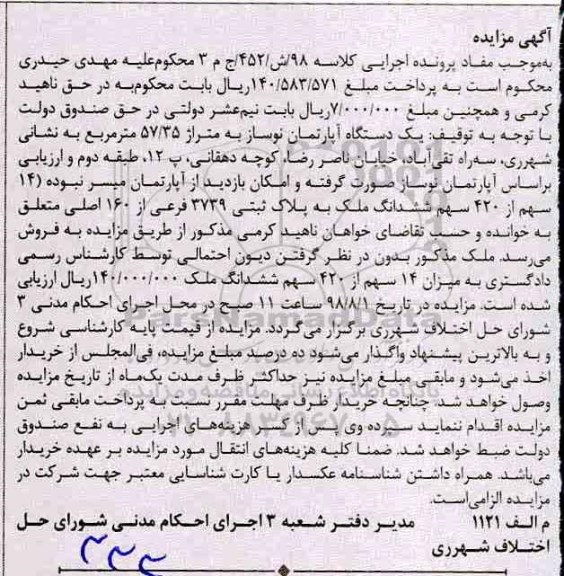 آگهی مزایده
به‌موجب مفاد پرونده اجرایی کلاسه ۹۸/ش/۴۵۲/ج م ۳ محکوم‌علیه مهدی حیدری
محکوم است به پرداخت مبلغ ۱۴۰/۵۸۳/۵۷۱ریال بابت محکوم‌به در حق ناهید
کرمی و همچنین مبلغ ۷/۰۰۰/۰۰۰ریال بابت نیم‌عشر دولتی در حق صندوق دولت
با توجه به توقیف: یک دستگاه آپارتمان نوساز به متراژ ۵۷/۳۵ مترمربع به نشانی
شهرری، سه‌راه تقی‌آباد، خیابان ناصر رضا، کوچه دهقانی، پ ۱۲، طبقه دوم و ارزیابی
براساس آپارتمان نوساز صورت گرفته و امکان بازدید از آپارتمان میسر نبوده (۱۴
سهم از ۴۲۰ سهم ششدانگ ملک به پلاک ثبتی ۳۷۳۹ فرعی از ۱۶۰ اصلی متعلق
به خوانده و حسب تقاضای خواهان ناهید کرمی مذکور از طریق مزایده به فروش
می‌رسد. ملک مذکور بدون در نظر گرفتن دیون احتمالی توسط کارشناس رسمی
دادگستری به میزان ۱۴ سهم از ۴۲۰ سهم ششدانگ ملک ۱۴۰/۰۰۰/۰۰۰ریال ارزیابی
شده است. مزایده در تاریخ ۹۸/۸/۱ ساعت ۱۱ صبح در محل اجرای احکام مدنی ۳
شورای حل اختلاف شهرری برگزار می‌گردد. مزایده از قیمت پایه کارشناسی شروع
و به بالاترین پیشنهاد واگذار می‌شود ده درصد مبلغ مزایده، فی‌المجلس از خریدار
اخذ می‌شود و مابقی مبلغ مزایده نیز حداکثر ظرف مدت یک‌ماه از تاریخ مزایده
وصول خواهد شد. چنانچه خریدار ظرف مهلت مقرر نسبت به پرداخت مابقی ثمن
مزایده اقدام ننماید سپرده وی پس از کسر هزینه‌های اجرایی به نفع صندوق
دولت ضبط خواهد شد. ضمنا کلیه هزینه‌های انتقال مورد مزایده بر عهده خریدار
می‌باشد. همراه داشتن شناسنامه عکسدار یا کارت شناسایی معتبر جهت شرکت در
مزایده الزامی‌است.
م الف ۱۱۲۱ مدیر دفتر شعبه ۳ اجرای احکام مدنی شورای حل
اختلاف شهرری
۳۳۳